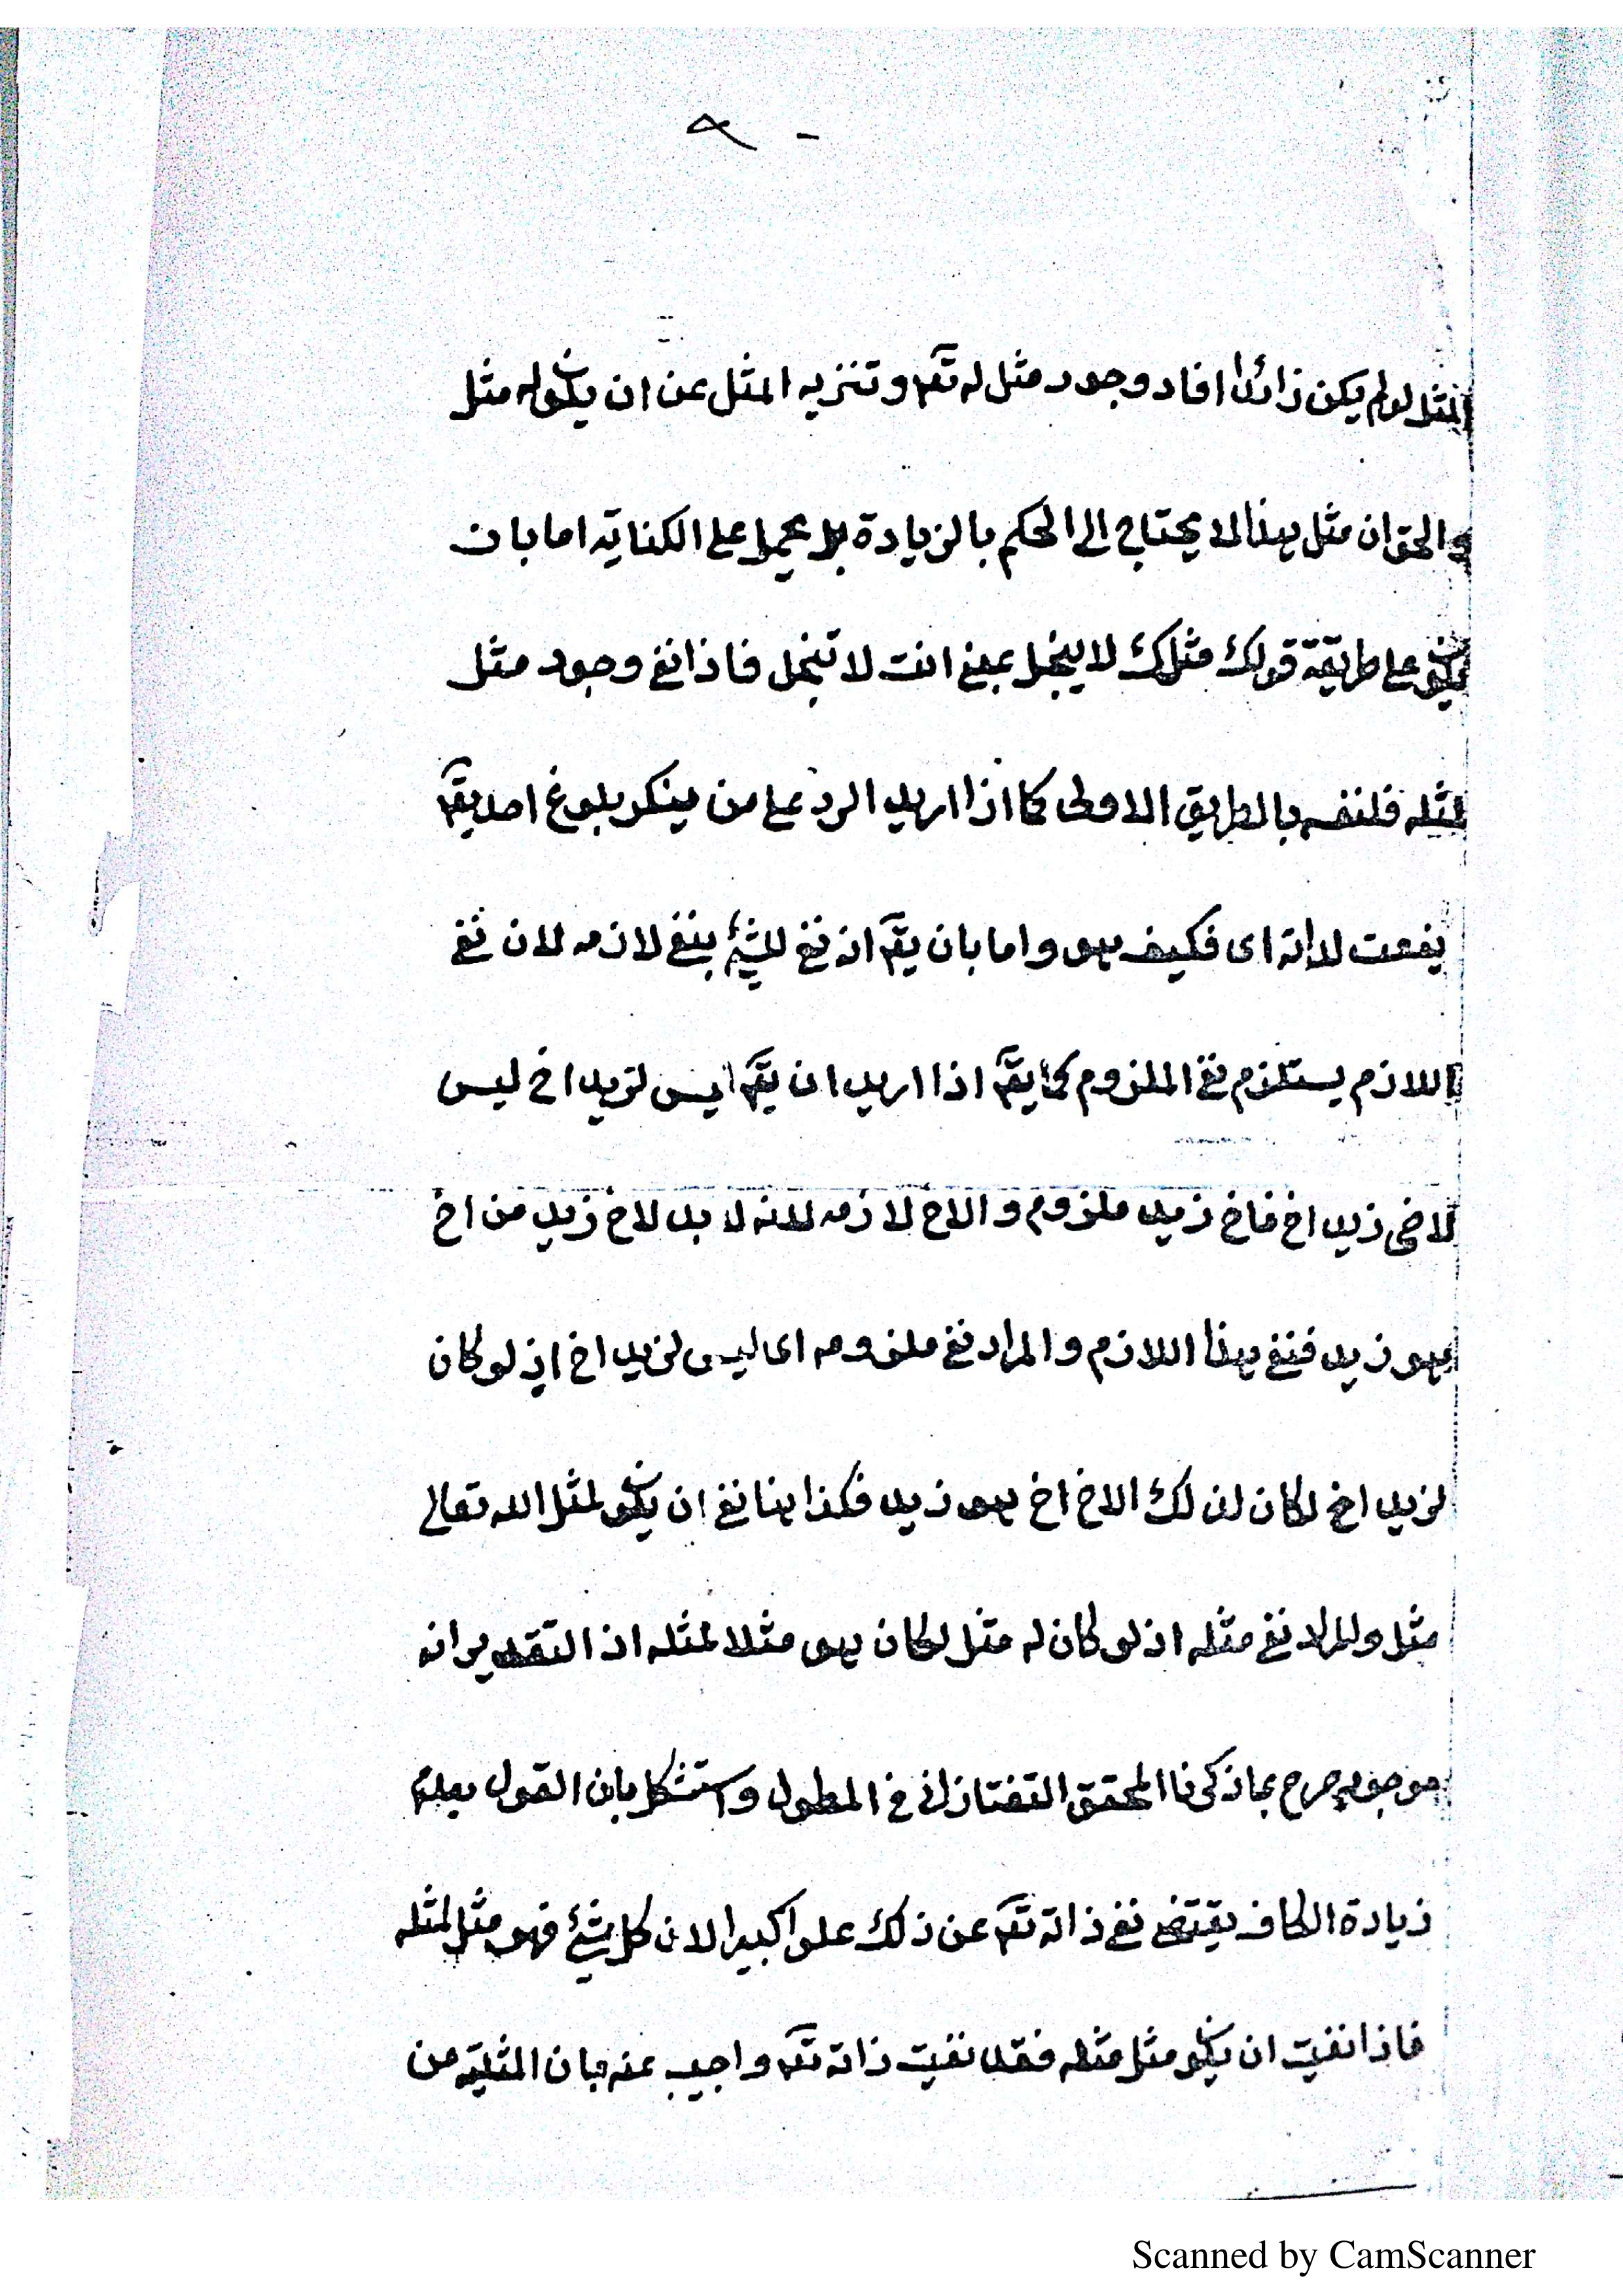 المثل لو لم يكن زائدا افاد وجود مثل له تعـ و تنزيه المثل عن ان يكون له مثل
والحق ان مثل هذا لا يحتاج الى الحكم بالزيادة بل يحمل على الكناية اما بان
يكون على طريقة قولك مثلك لا يبخل بمعنى انت لا تبخل فاذا نفى وجود مثل
لمثله فلنفسه بالطريق الاولى كما اذا اريد الرد على من ينكر بلوغ احد يقـ
يفعت لداته اى فكيف هو واما بان يقـ انه نفى للشئ بنفى لازمه لان نفى
اللازم يستلزم نفى الملزوم كما يقـ اذا اريد ان يقـ ليس لزيد اخ ليس
لاخى زيد اخ فاخ زيد ملزوم و الاخ لازمه لانه لا بد لاخ زيد من اخ
هو زيد فنفى هذا اللازم و المراد نفى ملزومه اى ليس لزيد اخ اذ لو كان
لزيد اخ لكان لذلك الاخ اخ هو زيد فكذا هنا نفى ان يكون لمثل الله تعالى
مثل والمراد نفى مثله اذ لو كان له مثل لكان هو مثلا لمثله اذ التقدير انه
موجود صرح بما ذكرنا المحقق التفتازانى فى المطول واستشكل بان القول بعدم
زيادة الكاف يقتضى نفى ذاته تعـ عن ذلك علوا كبيرا لان كل شئ فهو مثل لمثله
فاذا نفيت ان يكون مثل مثله فقد نفيت ذاته تعـ واجيب عنه بان المثلية من
Scanned by CamScanner